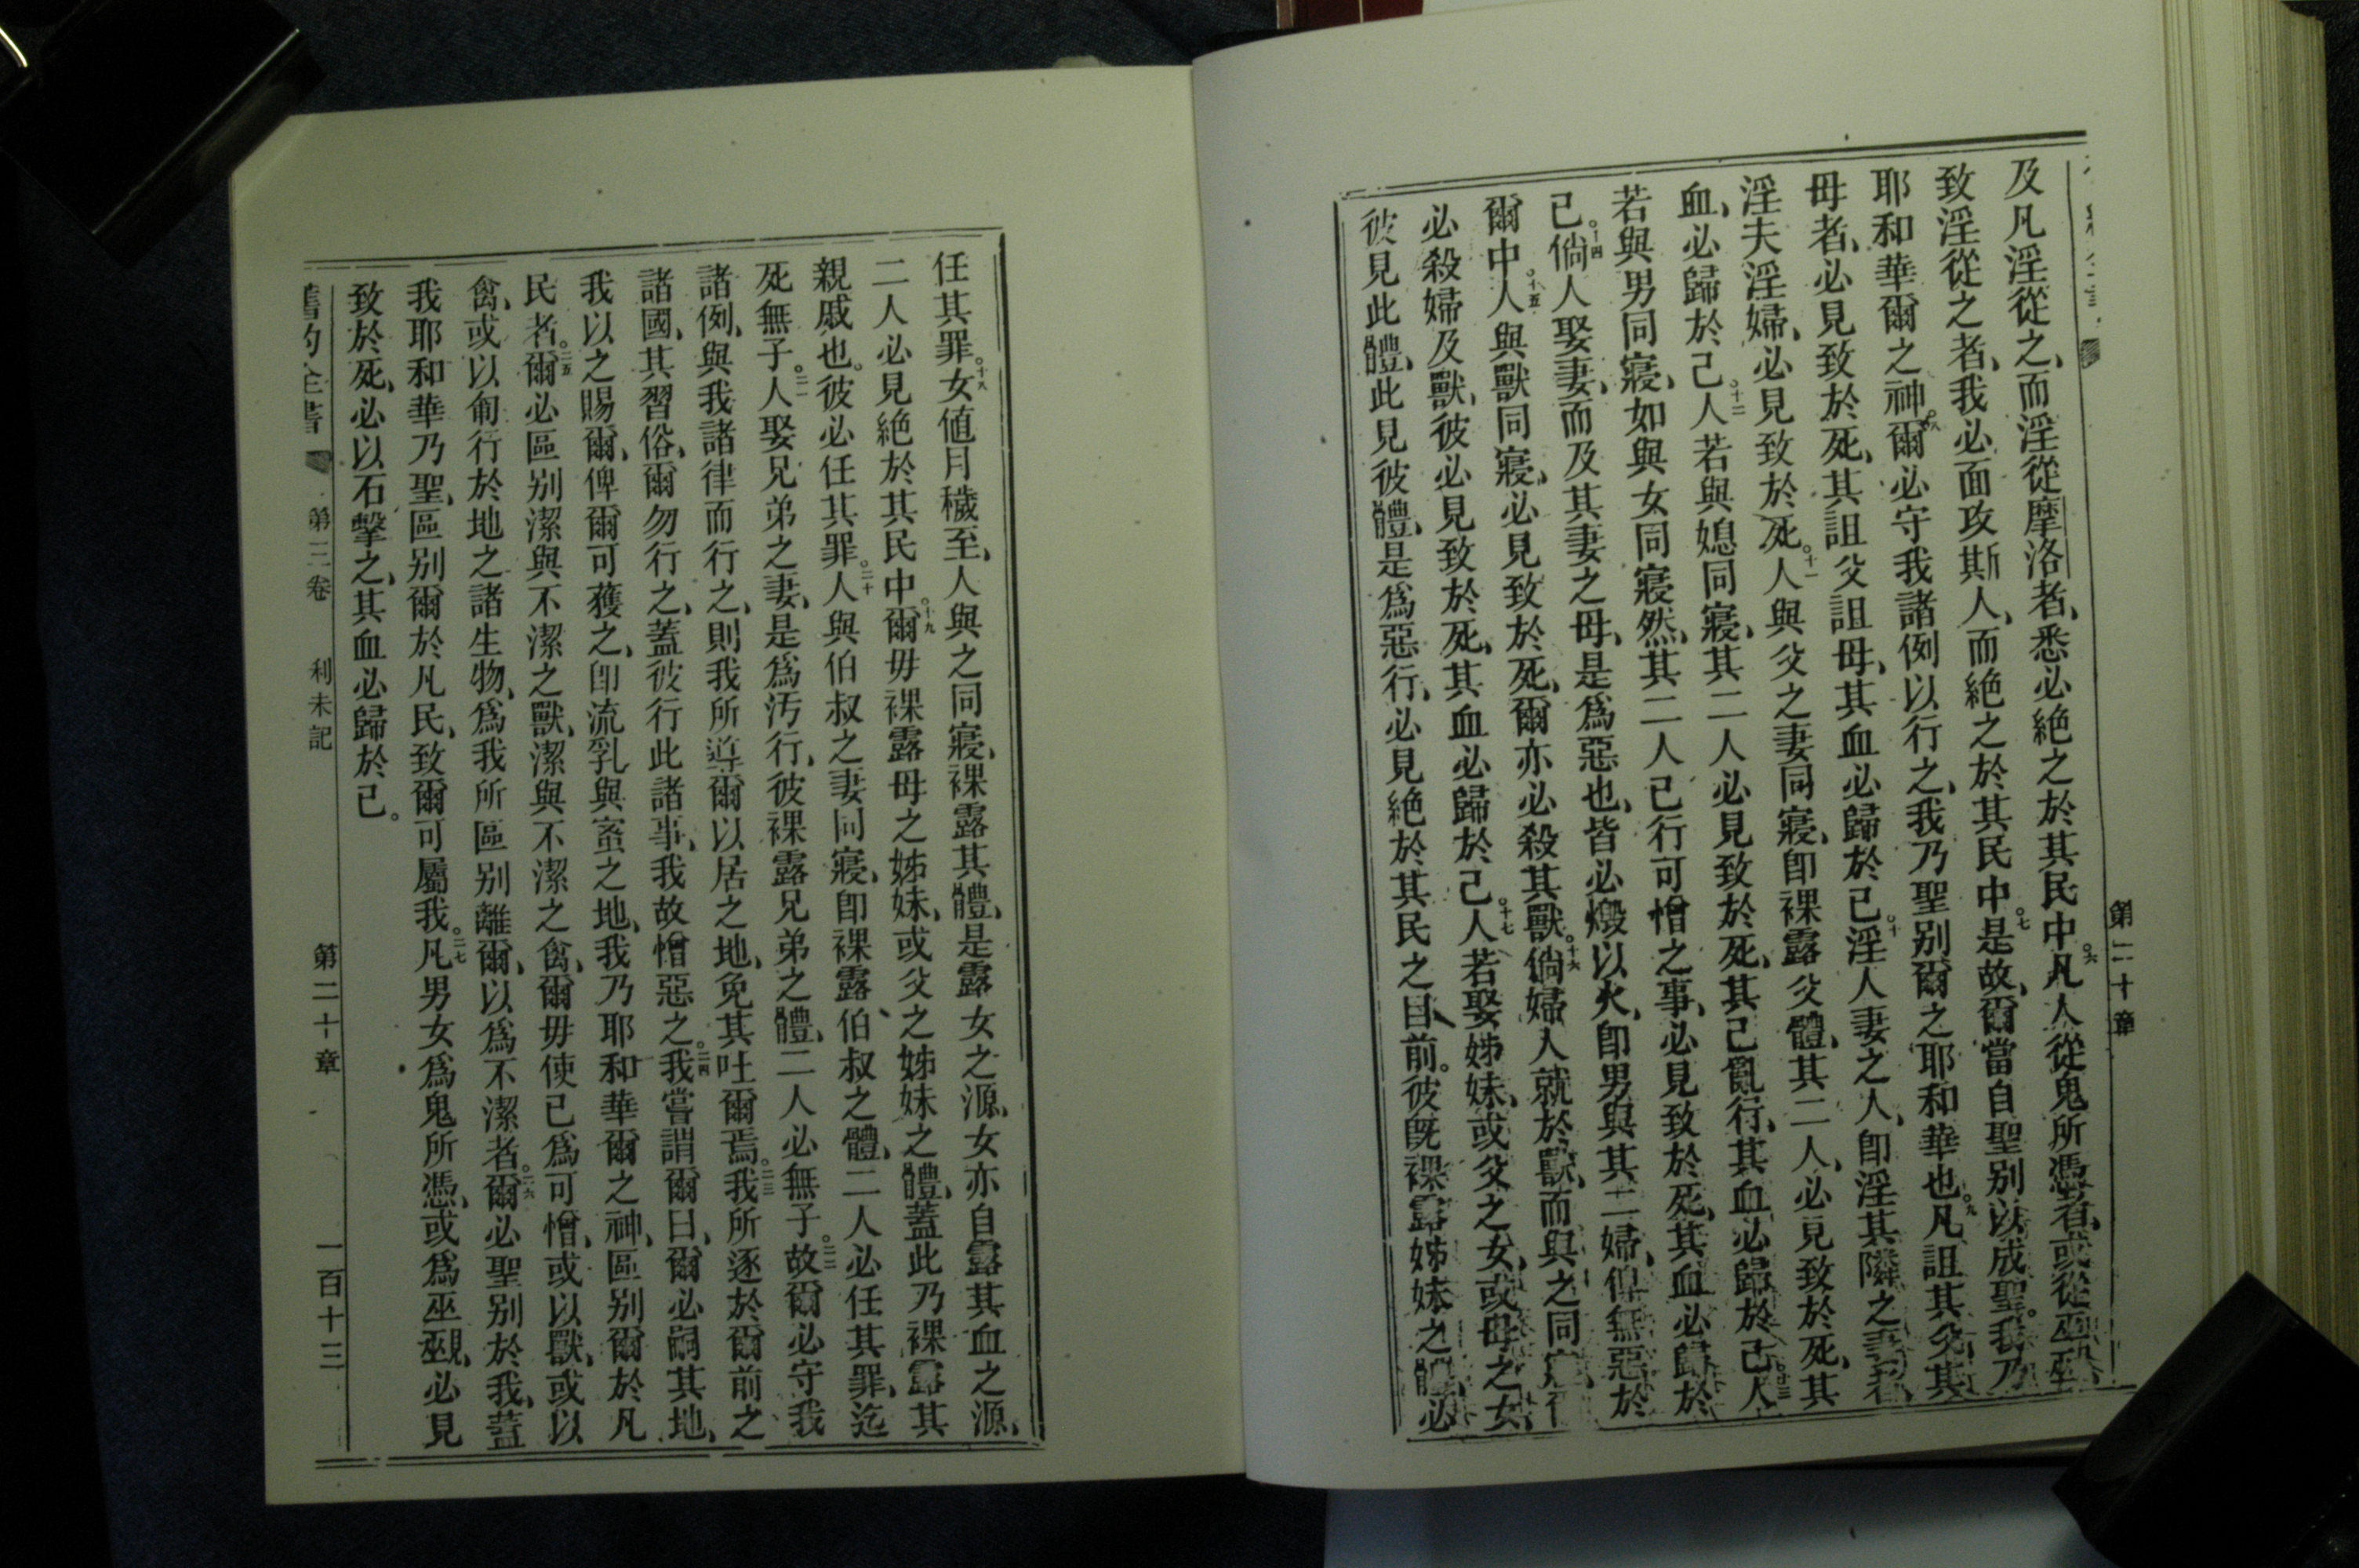 第二十章
及凡淫從之、而淫從摩洛者、悉必絶之於其民中。六凡人從鬼所憑者、或從巫
致淫從之者、我必面攻斯人、而絶之於其民中。七是故、爾當自聖别以成聖。我乃
耶和華爾之神。八爾必守我諸例以行之、我乃聖别爾之耶和華也。九凡詛其父、其
母者、必見致於死、其詛父詛母、其血必歸於己。十淫人妻之人、卽淫其隣之妻者、
淫夫淫婦、必見致於死。十一人與父之妻同寢、卽裸露父體、其二人、必見致於死、其
血、必歸於己。十二人若與媳同寢、其二人必見致於死、其己亂行、其血必歸於己。十三人
若與男同寢、如與女同寢然、其二人已行可憎之事、必見致於死、其血必歸於
己。十四倘人娶妻、而及其妻之母、是爲惡也、皆必燬以火、卽男與其二婦、俾無惡於
爾中。十五人與獸同寢、必見致於死、爾亦必殺其獸。十六倘婦人就於獸、而與之同
必殺婦及獸、彼必見致於死、其血必歸於己。十七人若娶姊妹、或父之女、或母之女、
彼見此體、此見彼體、是爲惡行、必見絶於其民之目前。彼旣裸露姊妹之體、必
任其罪。十八女値月穢至、人與之同寢、裸露其體、是露女之源、女亦自露其血之源、
二人必見絶於其民中。十九爾毋裸露母之姊妹、或父之姊妹之體、蓋此乃裸露其
親戚也。彼必任其罪。二十人與伯叔之妻同寢、卽裸露伯叔之體、二人必任其罪、迄
死無子。二一人娶兄弟之妻、是爲汚行、彼裸露兄弟之體、二人必無子。二二故爾必守我
諸例、與我諸律而行之、則我所導爾以居之地、免其吐爾焉。二三我所逐於爾前之
諸國、其習俗、爾勿行之、蓋彼行此諸事、我故憎惡之。二四我嘗謂爾曰、爾必嗣其地、
我以之賜爾、俾爾可獲之、卽流乳與蜜之地、我乃耶和華爾之神、區别爾於凡
民者。二五爾必區别潔與不潔之獸、潔與不潔之禽、爾毋使己爲可憎、或以獸、或以
禽、或以匍行於地之諸生物、爲我所區别離爾、以爲不潔者。二六爾必聖别於我、蓋
我耶和華乃聖、區别爾於凡民、致爾可屬我。二七凡男女爲鬼所憑、或爲巫覡、必見
致於死、必以石擊之、其血必歸於己。
舊約全書 第三卷 利未記 第二十章 一百十三